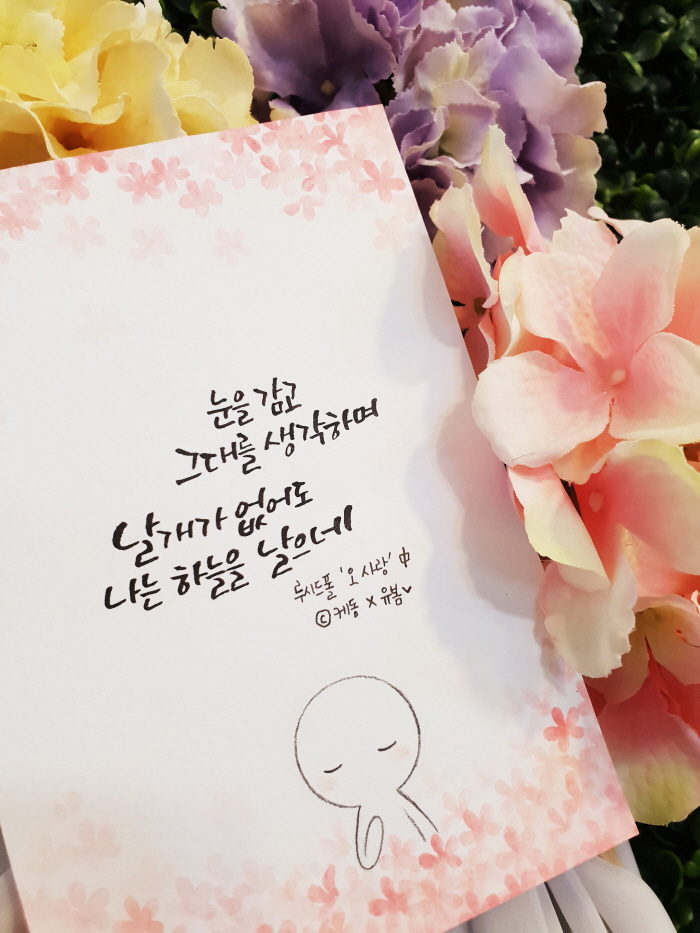 눈을 감고
그대를 생각하며
날개가 없어도
나는 하늘을 날으네
루시드폴 '오 사랑' 中
©케동 x 유봄♥